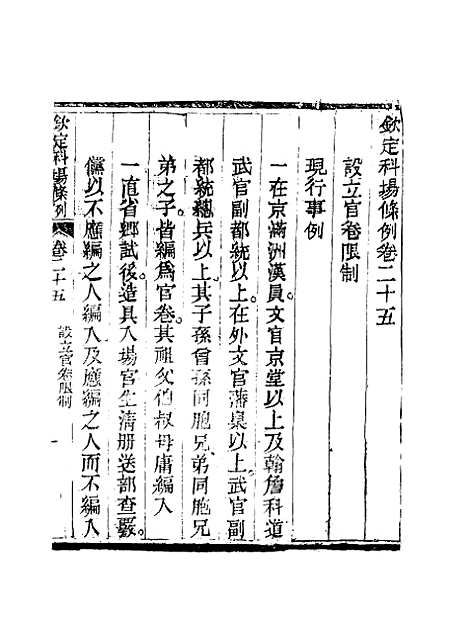 欽定科場條例卷二十五
設立官卷限制
現行事例
一在京滿洲漢員文官京堂以上及翰詹科道
武官副都統以上在外文官藩臬以上武官副
都統總兵以上其子孫曾孫同胞兄弟同胞兄
弟之子皆編爲官卷其祖父伯叔毋庸編入
一直省鄉試後造具入場官生淸册送部查覈
儻以不應編之人編入及應編之人而不編入
欽定科場條例 卷二十五 設立官卷限制 一